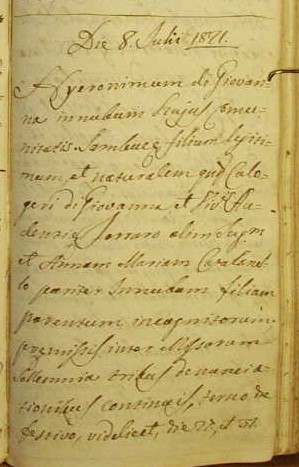 Die 8. Julii 1871.
Hyeronimum di Giovan-
na innubum hujus Comu-
nitatis Sambucę filium legiti-
mum, et naturalem qd Calo-
geri di Giovanna et
Ferraro olim
et Annam Mariam Catalanel-
lo pariter Innubam filiam
parentum incognitorum,
premissis inter Missarum
Sollemnia tribus denuncia-
tionibus continuis, terno die
festivo, videlicet, die 25, et